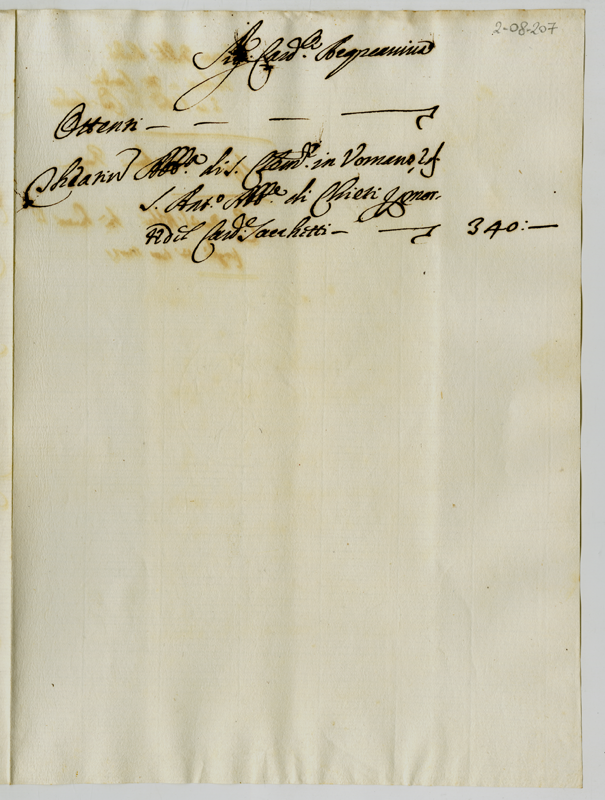 2-08-207
Sig.r Card.le
Ottenni —
Abb.a di S. Clem.te in Vomano, et
S. Ant.o Abb.e di Chieti p mor-
te del Card.le Sacchetti — 340:—